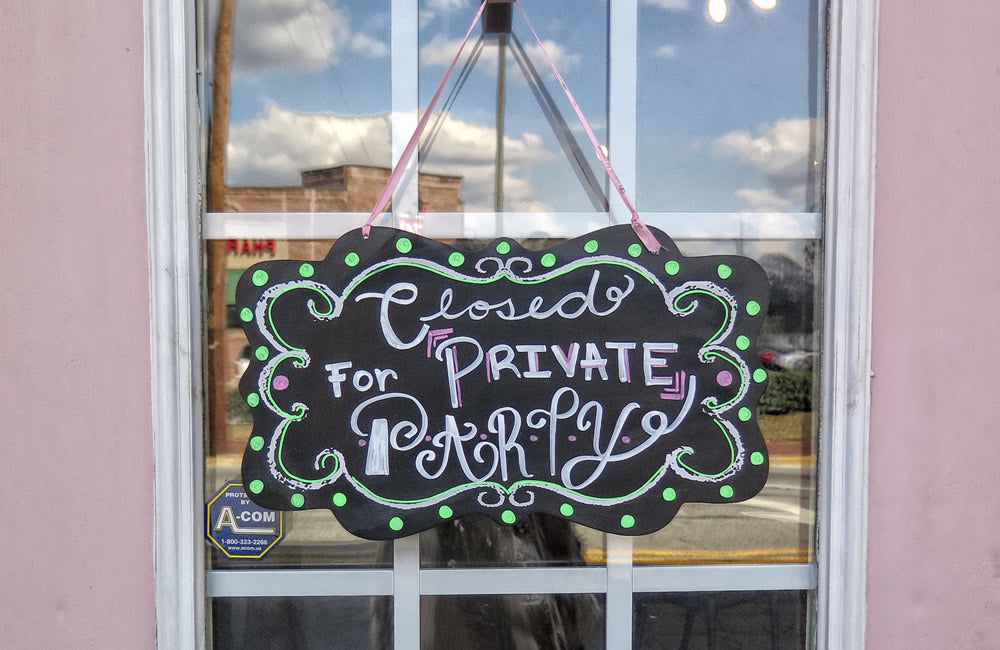 PHAR
Closed
For PRIVATE
PARTY
PROTE
BY
A-COM
1-800-323-2266
www.acom.us